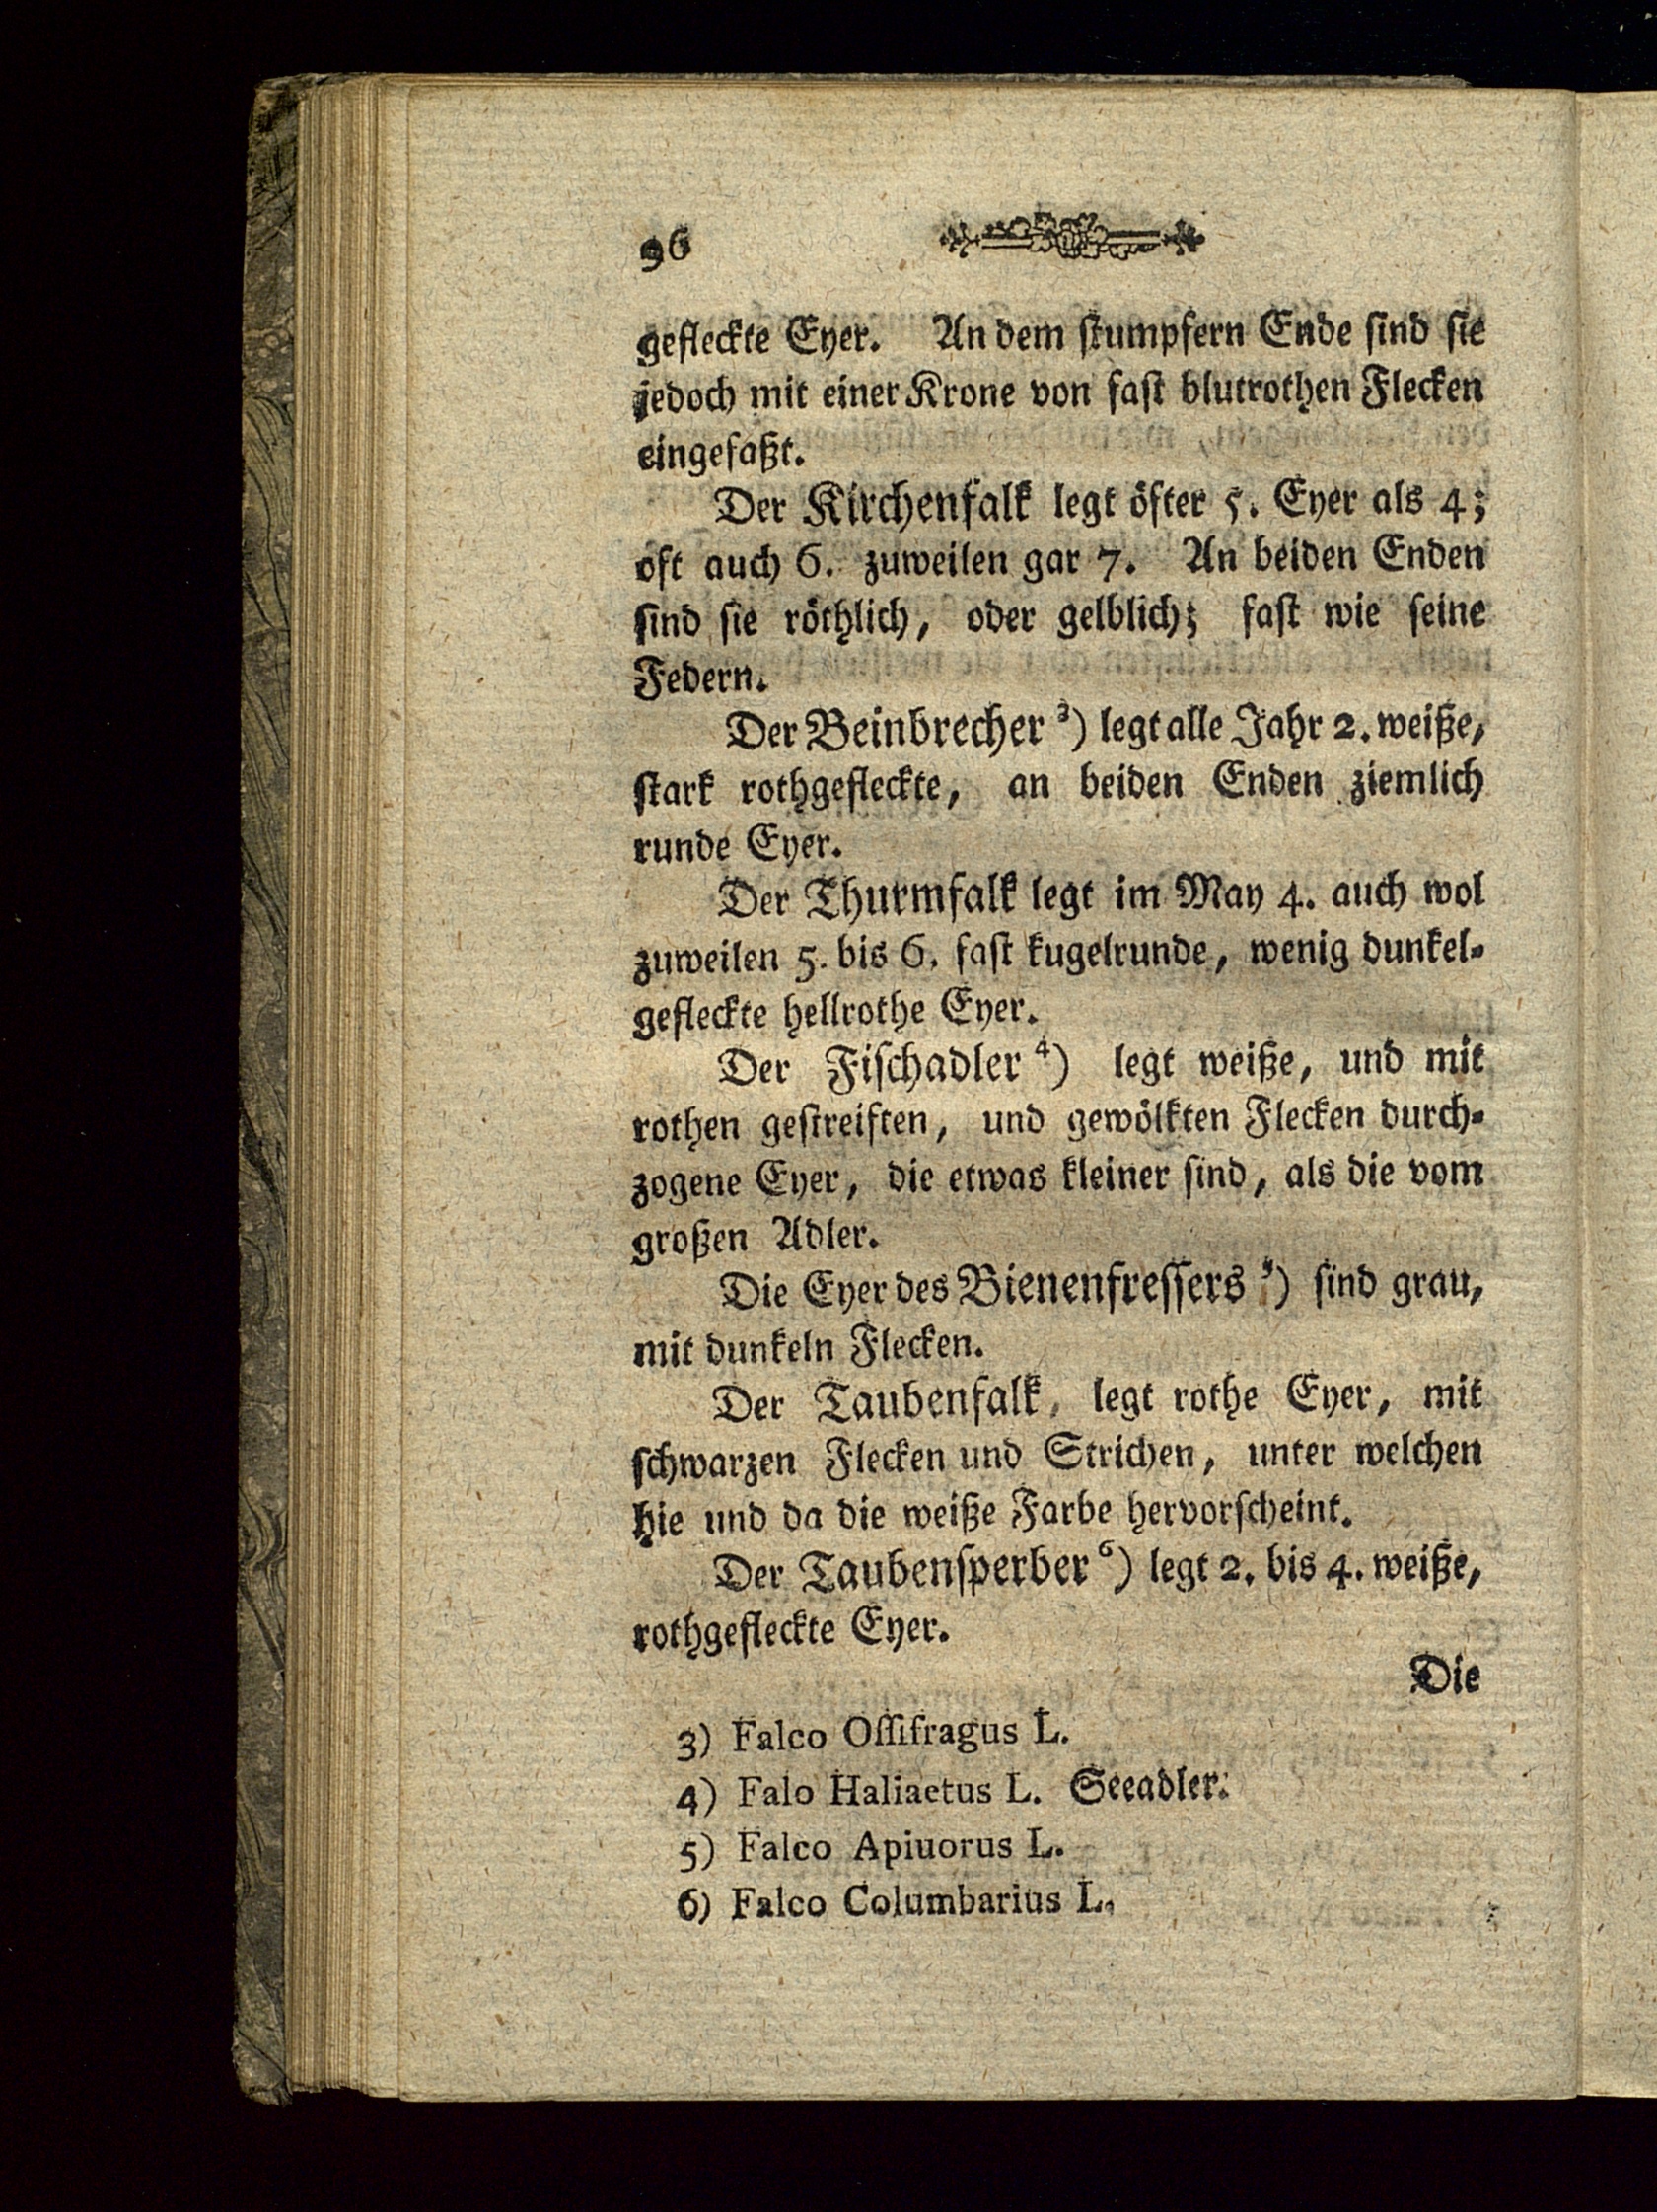 96
gefleckte Eyer. An dem stumpfern Ende sind sie
jedoch mit einer Krone von fast blutrothen Flecken
eingefaßt.
Der Kirchenfalk legt öfter 5. Eyer als 4;
oft auch 6. zuweilen gar 7. An beiden Enden
sind sie röthlich, oder gelblich; fast wie seine
Federn.
Der Beinbrecher ³) legt alle Jahr 2. weiße,
stark rothgefleckte, an beiden Enden ziemlich
runde Eyer.
Der Thurmfalk legt im May 4. auch wol
zuweilen 5. bis 6. fast kugelrunde, wenig dunkel-
gefleckte hellrothe Eyer.
Der Fischadler ⁴) legt weiße, und mit
rothen gestreiften, und gewölkten Flecken durch-
zogene Eyer, die etwas kleiner sind, als die vom
großen Adler.
Die Eyer des Bienenfressers ⁵) sind grau,
mit dunkeln Flecken.
Der Taubenfalk, legt rothe Eyer, mit
schwarzen Flecken und Strichen, unter welchen
hie und da die weiße Farbe hervorscheint.
Der Taubensperber ⁶) legt 2. bis 4. weiße,
rothgefleckte Eyer.
Die
3) Falco Ossifragus L.
4) Falo Haliaetus L. Seeadler.
5) Falco Apiuorus L.
6) Falco Columbarius L.